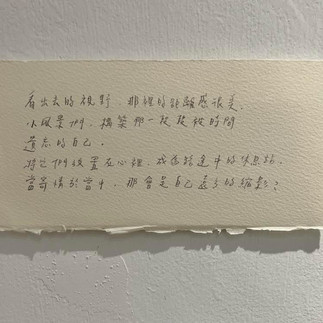 看出去的視野、那裡的距離感很美、
小風景們,構築那一段段被時間
遺忘的自己。
將它們放置在心裡,成為路途中的休息站,
當寄情於當中,那會是自己遠方的縮影?